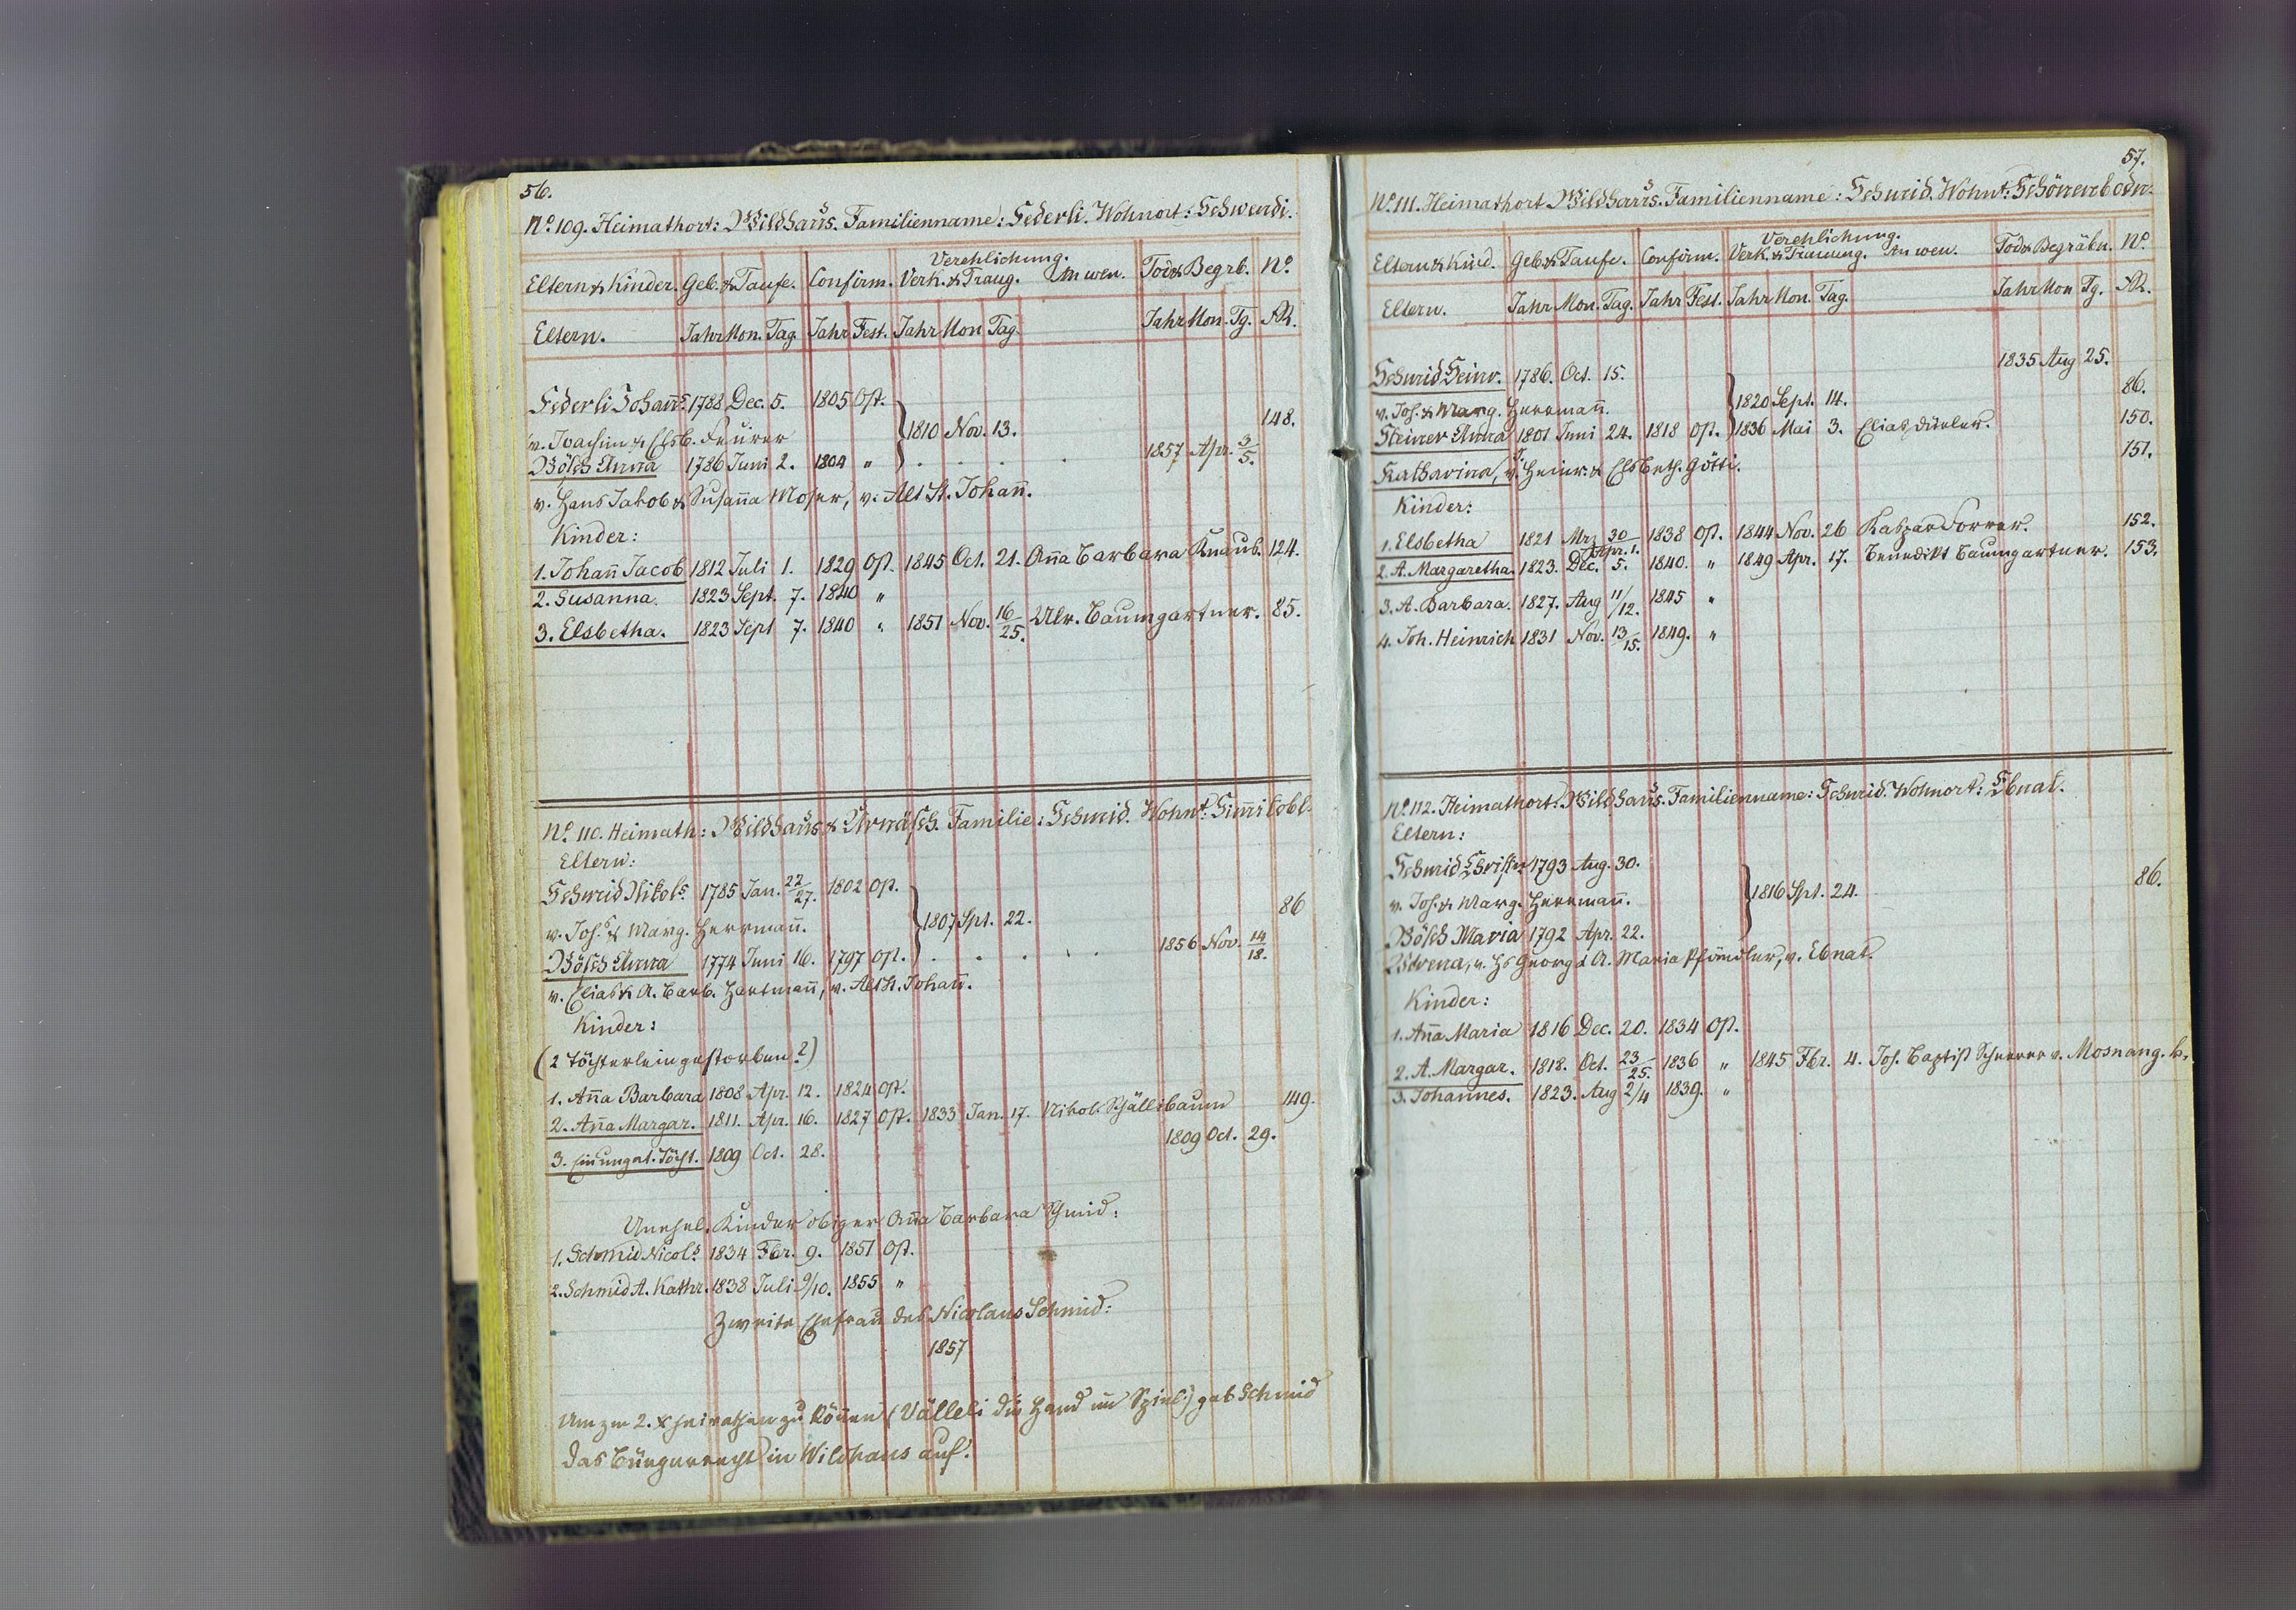 56.
No. 109. Heimathort: Wildhaus. Familienname: Federli. Wohnort: Schwendi.
Verehlichung.
Eltern & Kinder. Geb. & Taufe. Confirm. Verk. & Traug. An wen. Tod & Begrb. No.
Eltern. Jahr Mon. Tag. Jahr Fest. Jahr Mon Tag. Jahr Mon. Tg. AR.
Federli Johans. 1788 Dec. 5. 1805 Ost.
v. Joachim & Elsb. Feurer 1810 Nov. 13. 148.
Bösch Anna 1786 Juni 2. 1804 " 1857 Apr. 3/5.
v. Hans Jakob & Susaña Moser, v. Alt St. Johañ.
Kinder:
1. Johañ Jacob 1812 Juli 1. 1829 Ost. 1845 Oct. 21. Aña Barbara Knaub. 124.
2. Susanna. 1823 Sept. 7. 1840 "
3. Elsbetha. 1823 Sept 7. 1840 " 1851 Nov. 16/25. Ulr. Baumgartner. 85.
No. 110. Heimath: Wildhaus & Urnäsch. Familie: Schmid. Wohnt:
Eltern:
Schmid Nikols. 1785 Jan. 22/27. 1802 Ost.
v. Johs. & Marg. Herrmañ. 1807 Spt. 22. 86
Bösch Anna 1774 Juni 16. 1797 Ost. 1856 Nov. 14/18.
v. Elias & A. Barb. Hartmañ, v. Alt St. Johañ.
Kinder:
(2 Töchterlein gestorben?)
1. Aña Barbara 1808 Apr. 12. 1824 Ost.
2. Aña Margar. 1811. Apr. 16. 1827 Ost. 1833 Jan. 17. Nikol. Schällibaum 149.
3. Ein unget. Töcht. 1809 Oct. 28. 1809 Oct. 29.
Unehel. Kinder obiger Aña Barbara Schmid:
1. Schmid Nicols. 1834 Fbr. 9. 1851 Ost.
2. Schmid A. Kathr. 1838 Juli 9/10. 1855 "
Zweite Ehefrau des Nicolaus Schmid:
1857
Um zm 2. x heirathen zu köñen (Välleli die Hand im Spiel) gab Schmid
das Bürgerrecht in Wildhaus auf.
57.
No. 111. Heimathort Wildhaus. Familienname: Schmid. Wohnt: Schönenbodn.
Verehlichung.
Eltern & Kind. Geb. & Taufe. Confirm. Verk. & Trauung. An wen. Tod & Begräbn. No.
Eltern. Jahr Mon. Tag. Jahr Fest. Jahr Mon. Tag. Jahr Mon Tg. AR.
Schmid Heinr. 1786. Oct. 15. 1835 Aug 25.
v. Joh. & Marg. Herrmañ. 1820 Sept. 14. 86.
Steiner Anna 1801 Juni 24. 1818 Ost. 1836 Mai 3. Elias Dürler. 150.
Katharina, v. Heinr. & Elsbeth. Götti. 151.
Kinder:
1. Elsbetha 1821 Mrz 30/Apr. 1. 1838 Ost. 1844 Nov. 26 Kaspar Forrer. 152.
2. A. Margaretha. 1823. Dec. 5. 1840. " 1849 Apr. 17. Benedikt Baumgartner. 153.
3. A. Barbara. 1827. Aug 11/12. 1845 "
4. Joh. Heinrich 1831 Nov. 13/15. 1849. "
No. 112. Heimathort: Wildhaus. Familienname: Schmid. Wohnort: Ebnat.
Eltern:
Schmid Christn 1793 Aug. 30.
v. Joh. & Marg. Herrmañ. 1816 Spt. 24. 86.
Bösch Maria 1792 Apr. 22.
Verena, v. Hs Georg & A. Maria Pfändler, v. Ebnat.
Kinder:
1. Aña Maria 1816 Dec. 20. 1834 Ost.
2. A. Margar. 1818. Oct. 23/25. 1836 " 1845 Fbr. 4. Joh. Baptist Scherrer v. Mosnang. k.
3. Johannes. 1823. Aug 2/4 1839. "